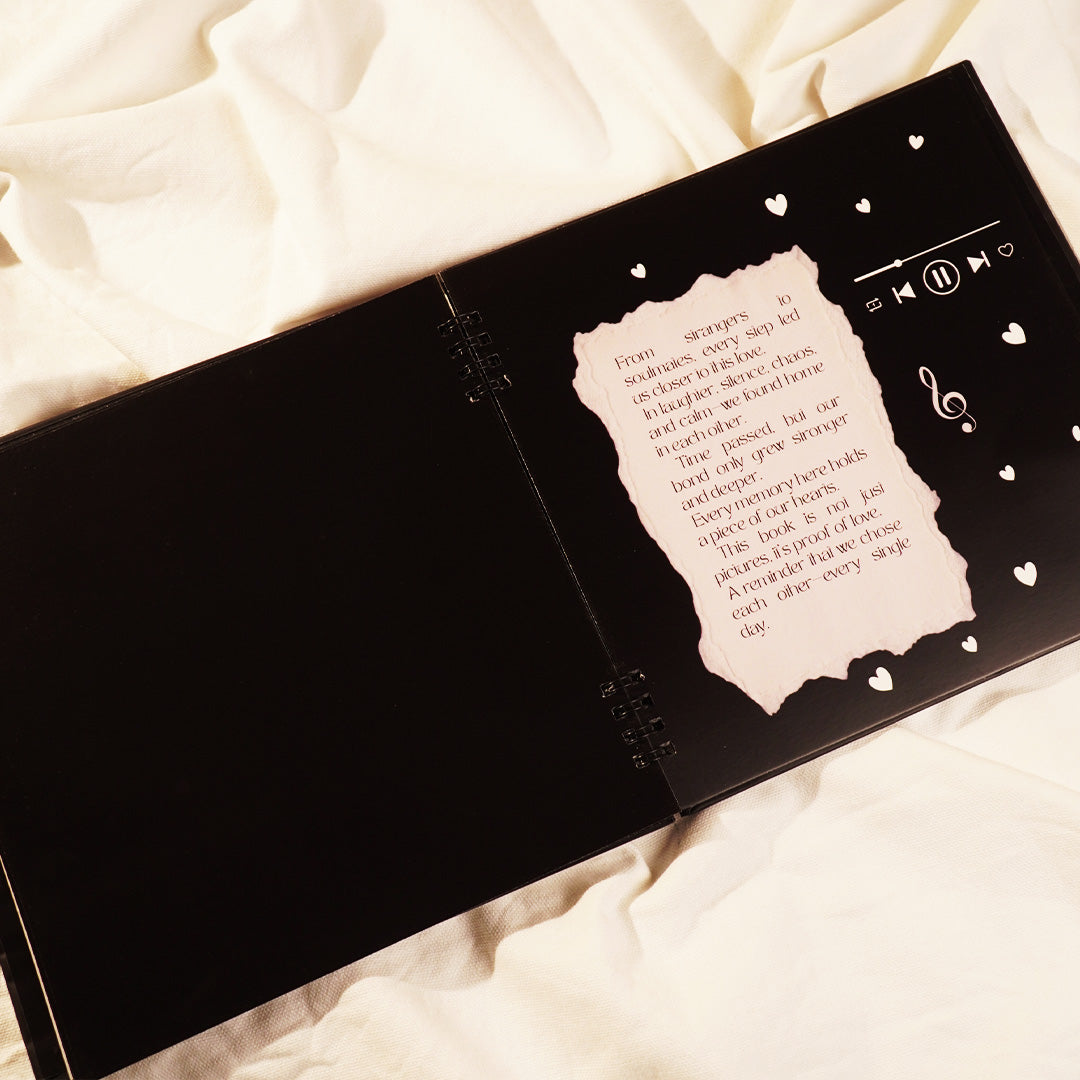 From strangers to
soulmates, every step led
us closer to this love.
In laughter, silence, chaos,
and calm—we found home
in each other.
Time passed, but our
bond only grew stronger
and deeper.
Every memory here holds
a piece of our hearts.
This book is not just
pictures, it's proof of love.
A reminder that we chose
each other—every single
day.